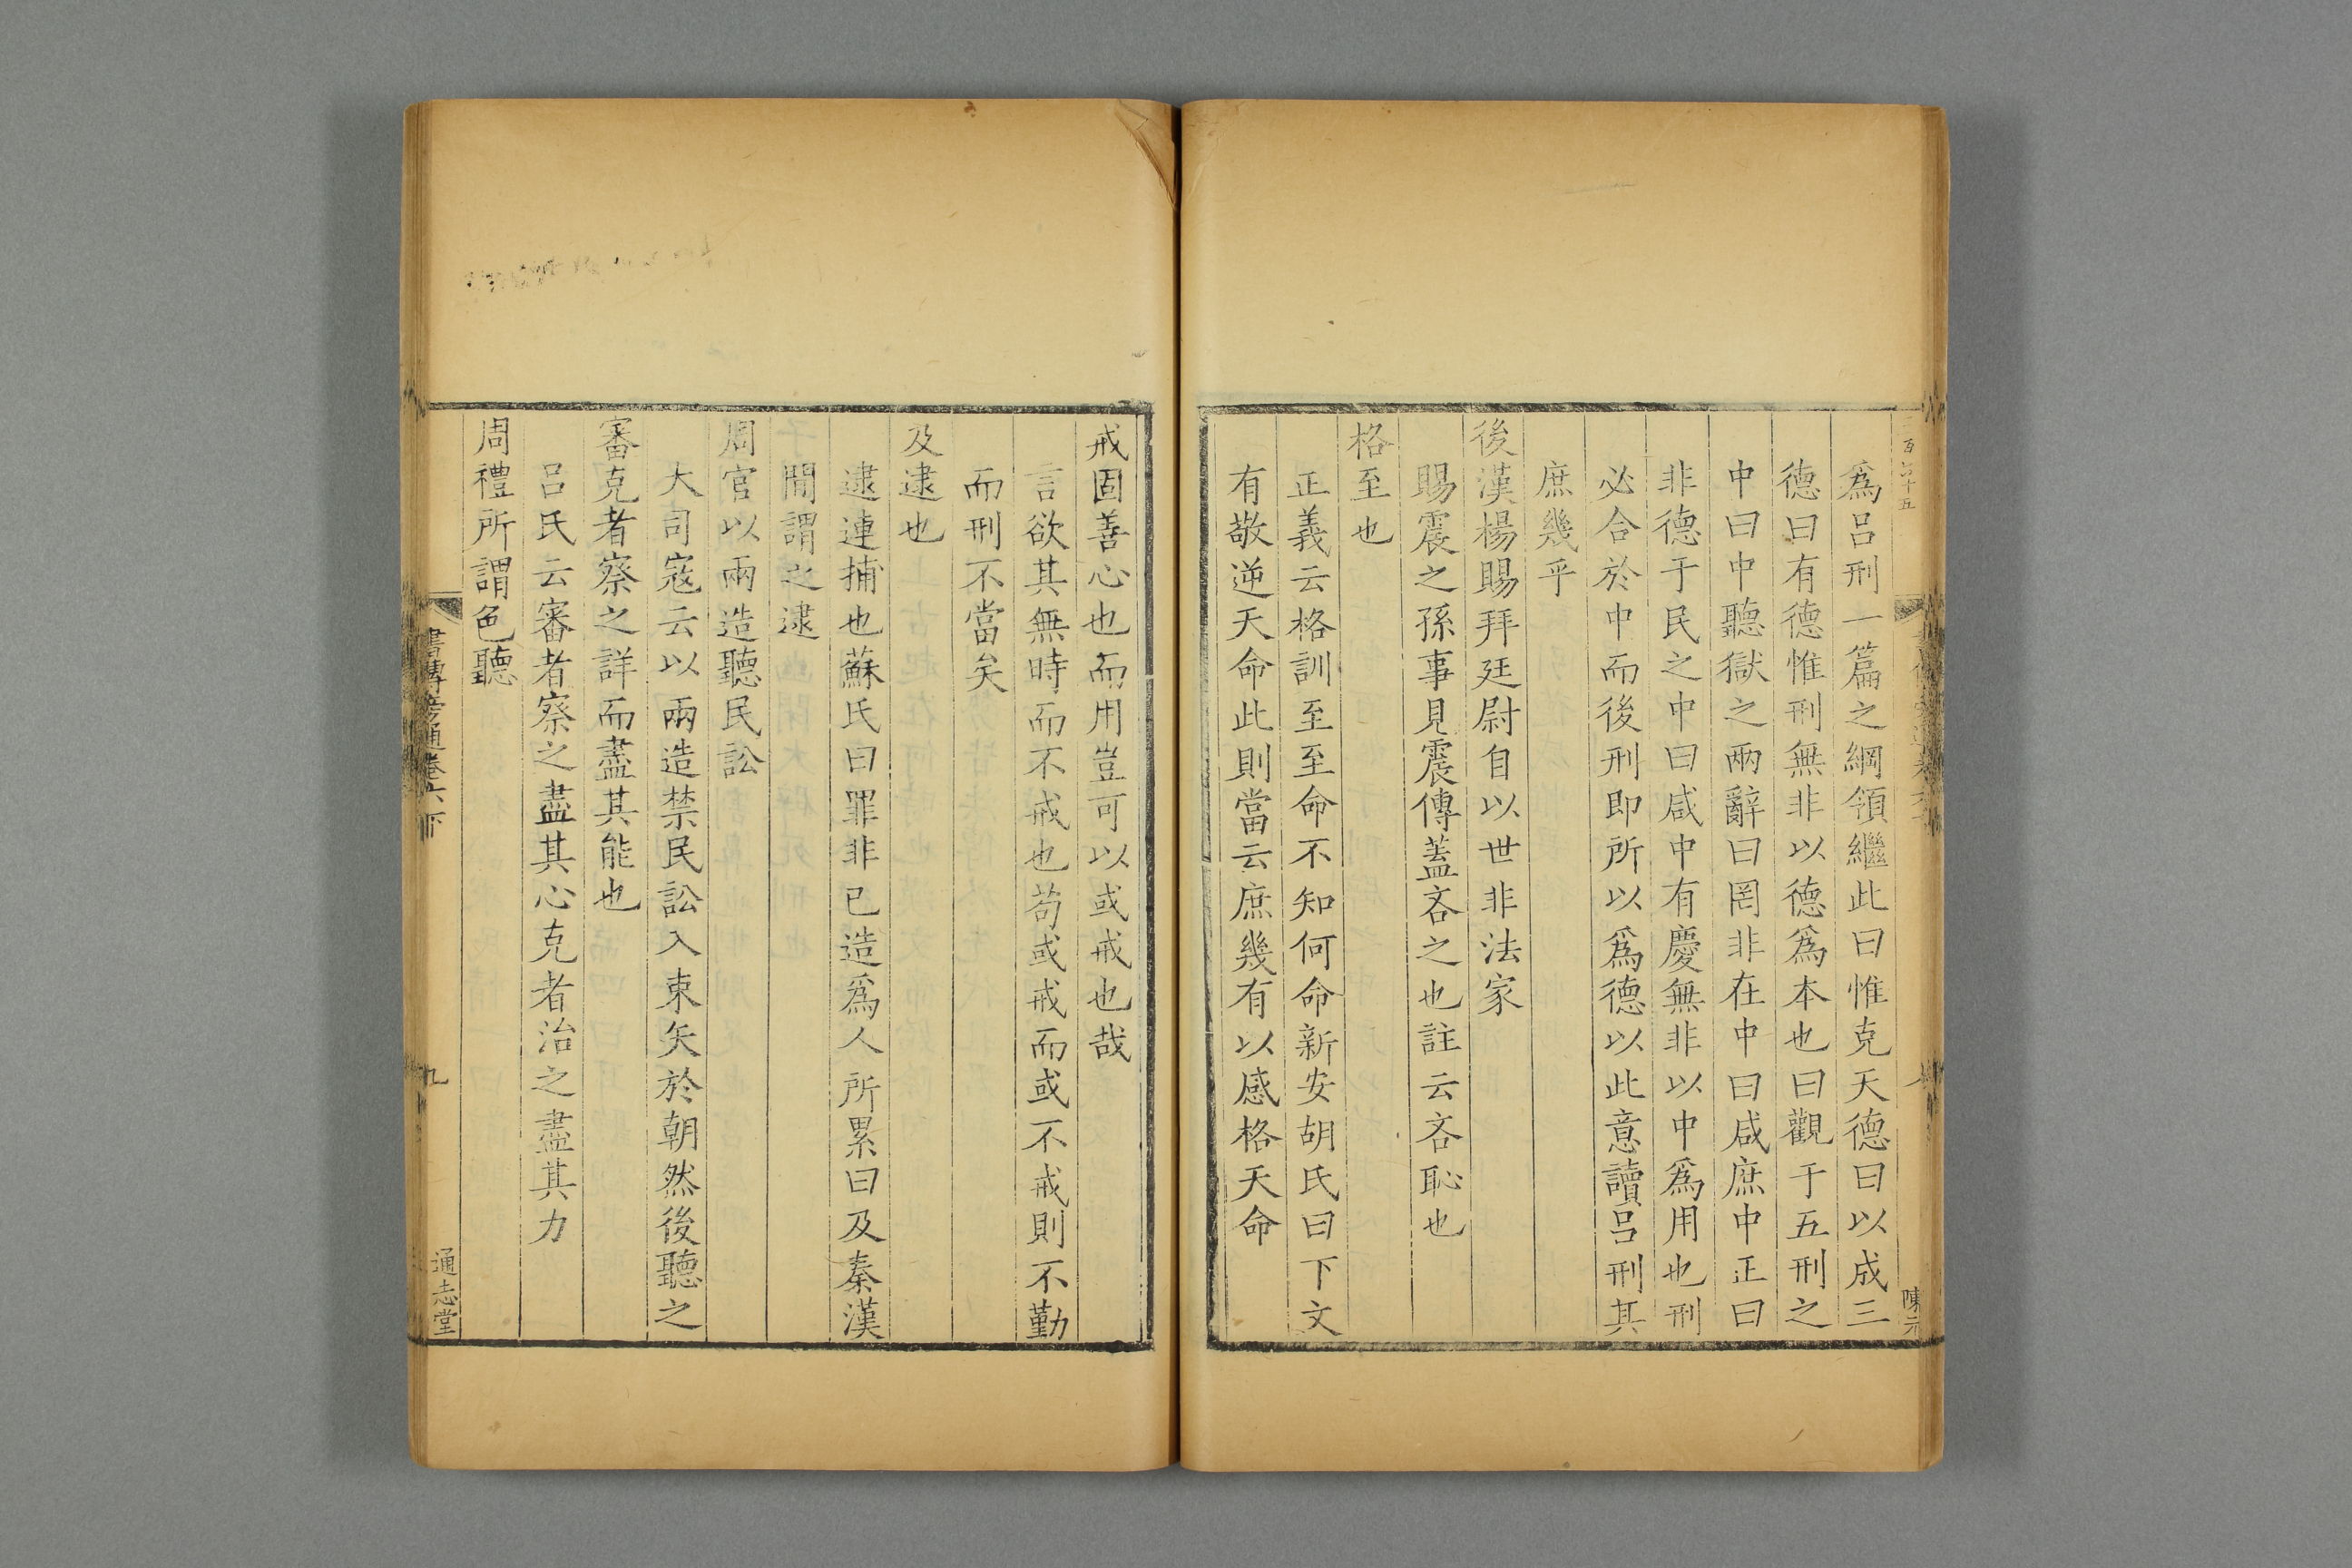 爲呂刑一篇之綱領繼此曰惟克天德曰以成三
德曰有德惟刑無非以德爲本也曰觀于五刑之
中曰中聽獄之兩辭曰罔非在中曰咸庶中正曰
非德于民之中曰咸中有慶無非以中爲用也刑
必合於中而後刑即所以爲德以此意讀呂刑其
庶幾乎
後漢楊賜拜廷尉自以世非法家
賜震之孫事見震傳蓋吝之也註云吝恥也
格至也
正義云格訓至至命不知何命新安胡氏曰下文
有敬逆天命此則當云庶幾有以感格天命
陳元
戒固善心也而用豈可以或戒也哉
言欲其無時而不戒也苟或戒而或不戒則不勤
而刑不當矣
及逮也
逮連捕也蘇氏曰罪非已造爲人所累曰及秦漢
閒謂之逮
周官以兩造聽民訟
大司寇云以兩造禁民訟入束矢於朝然後聽之
審克者察之詳而盡其能也
呂氏云審者察之盡其心克者治之盡其力
周禮所謂色聽
書傳旁通卷六下
九
通志堂